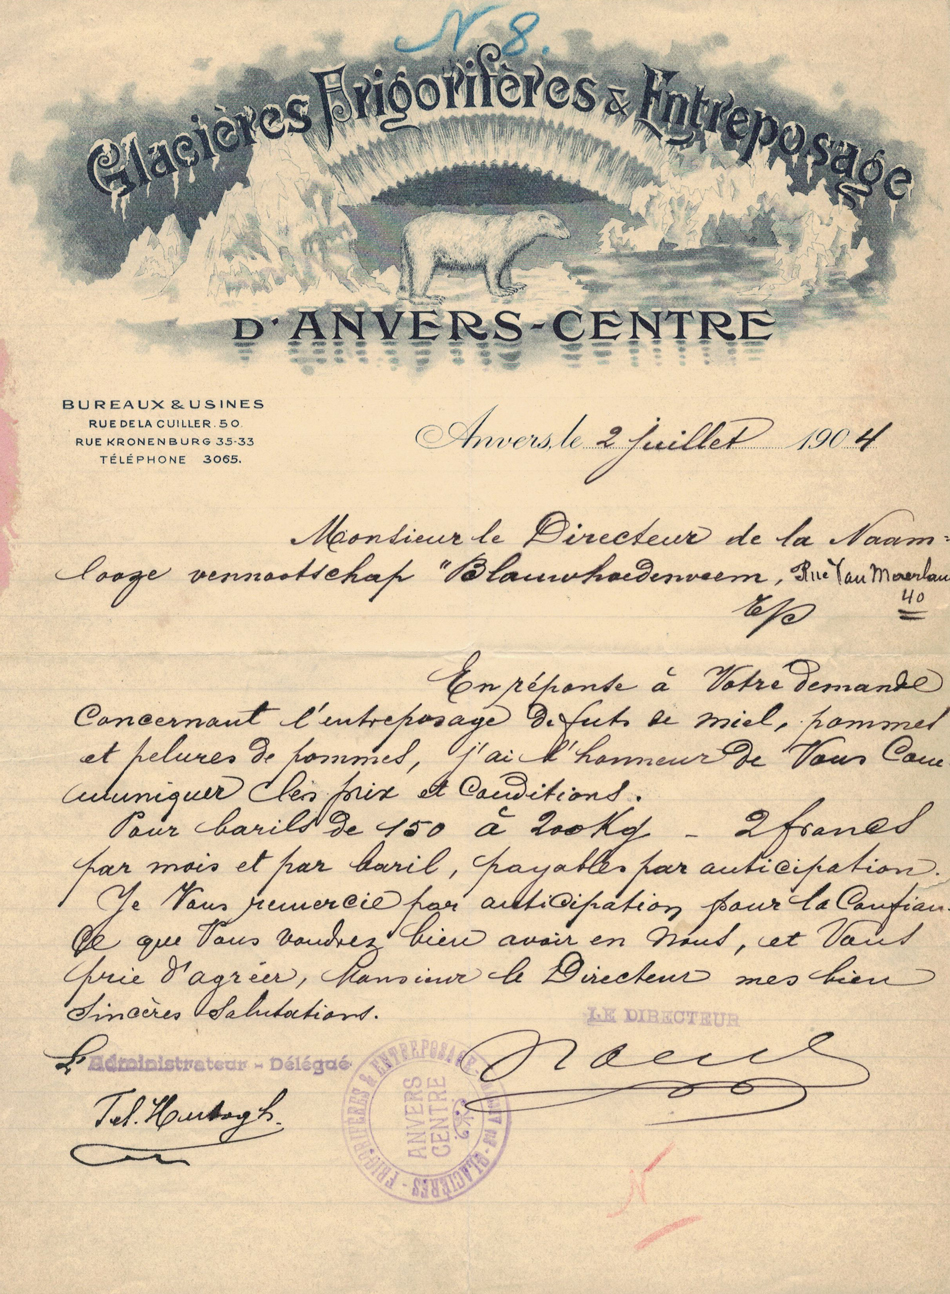 N 8.
Glacières Frigorifères & Entreposage
D'ANVERS-CENTRE
BUREAUX & USINES
RUE DE LA CUILLER.50.
RUE KRONENBURG 35-33
TÉLÉPHONE 3065.
Anvers, le 2 juillet 1904
Monsieur le Directeur de la Naam=
looze vennootschap "Blauwhoedenveem, Rue Van
40
En réponse à Votre demande
concernant l'entreposage de futs de miel, pommes
et pelures de pommes, j'ai l'honneur de Vous Com
muniquer les prix et Conditions.
Pour barils de 150 à 200 Kg – 2 francs
par mois et par baril, payables par anticipation.
Je Vous remercie par anticipation pour la Confian-
ce que Vous voudrez bien avoir en Nous, et Vous
prie d'agréer, Monsieur le Directeur mes bien
Sincères Salutations.
LE DIRECTEUR
L'Administrateur - Délégué
GLACIÈRES - FRIGORIFÈRES & ENTREPOSAGE.
ANVERS
CENTRE
N